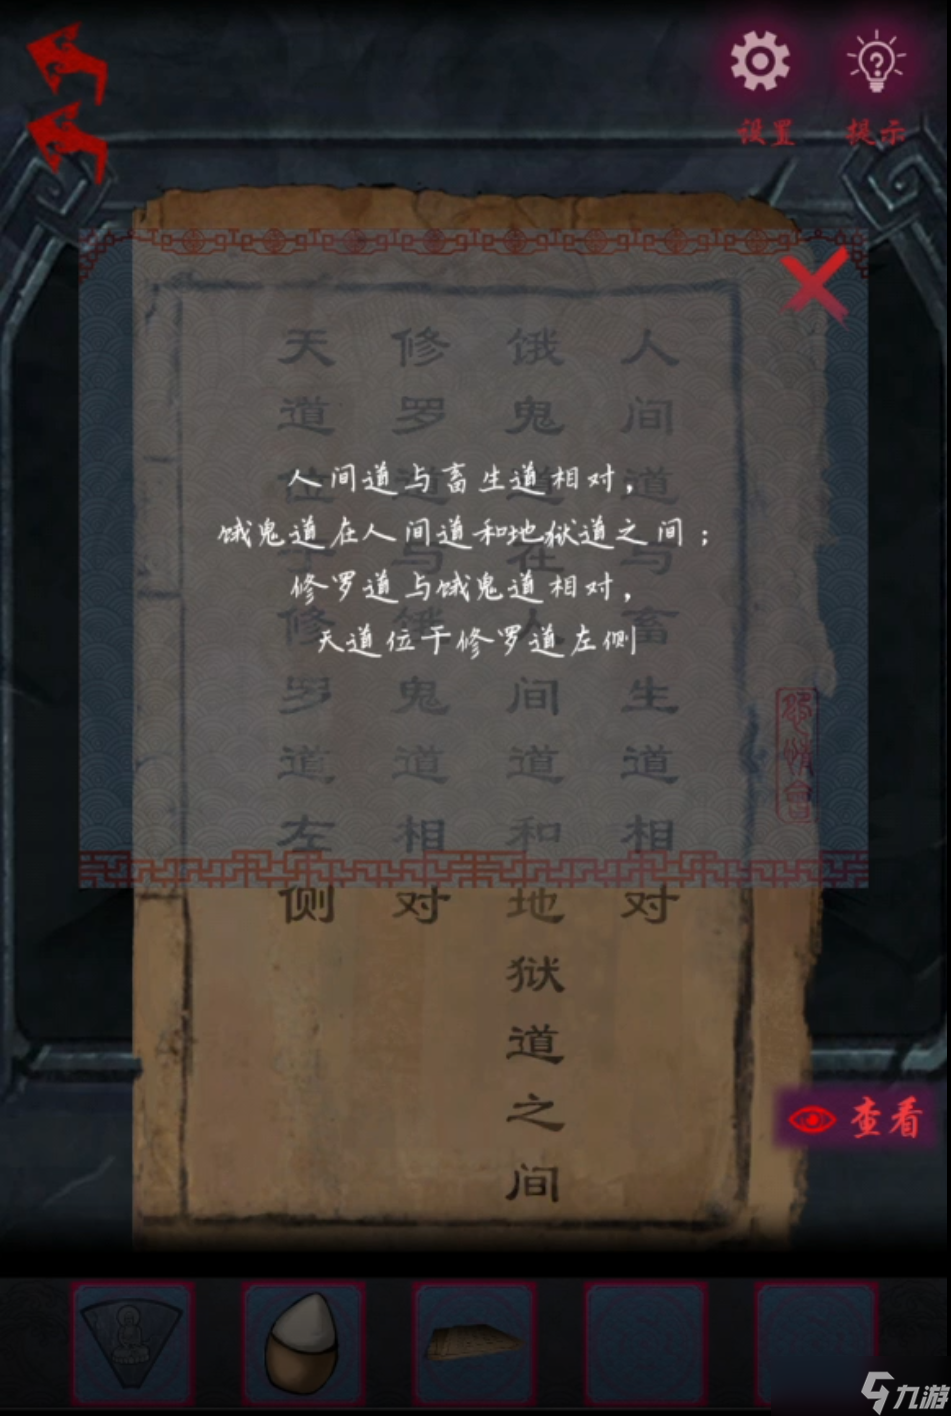 设置
提示
人间道与畜生道相对，
饿鬼道在人间道和地狱道之间；
修罗道与饿鬼道相对，
天道位于修罗道左侧
人间道与畜生道相对
饿鬼道在人间道和地狱道之间
修罗道与饿鬼道相对
天道位于修罗道左侧
查看
九游